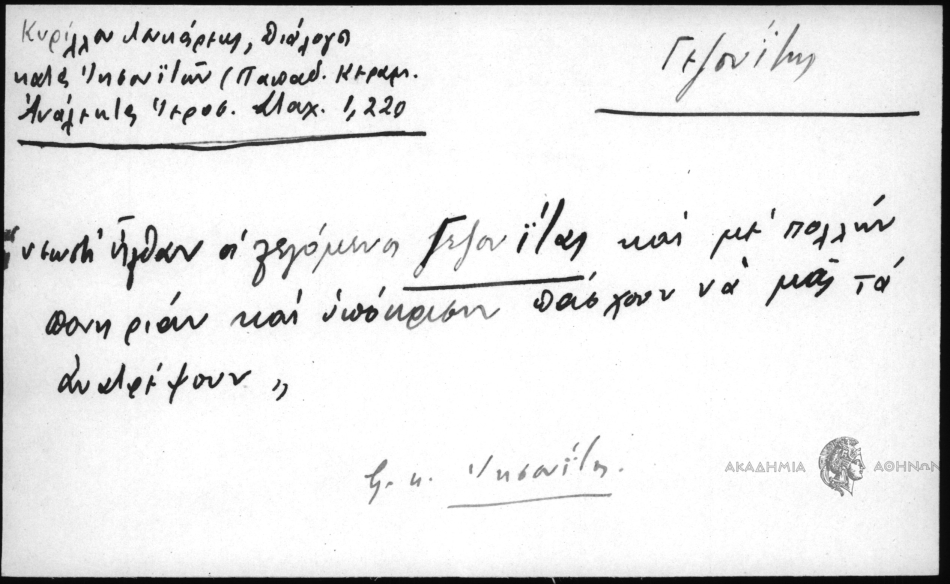 Κυρίλλου Λουκάρεως, Διάλογος
κατά Ἰησουϊτῶν (Παπαδ. Κεραμ.
Ἀνάλεκτα Ἱεροσ. Σταχ. 1, 220
Γεζουΐτης
νεωστί ἦλθαν οἱ λεγόμενοι Γεζουΐται καί μέ πολλήν
πονηρίαν καί ὑπόκρισιν πάσχουν νά μᾶς τά
ἀνατρέψουν „
β. κ. Ἰησουΐτης.
ΑΚΑΔΗΜΙΑ ΑΘΗΝΩΝ